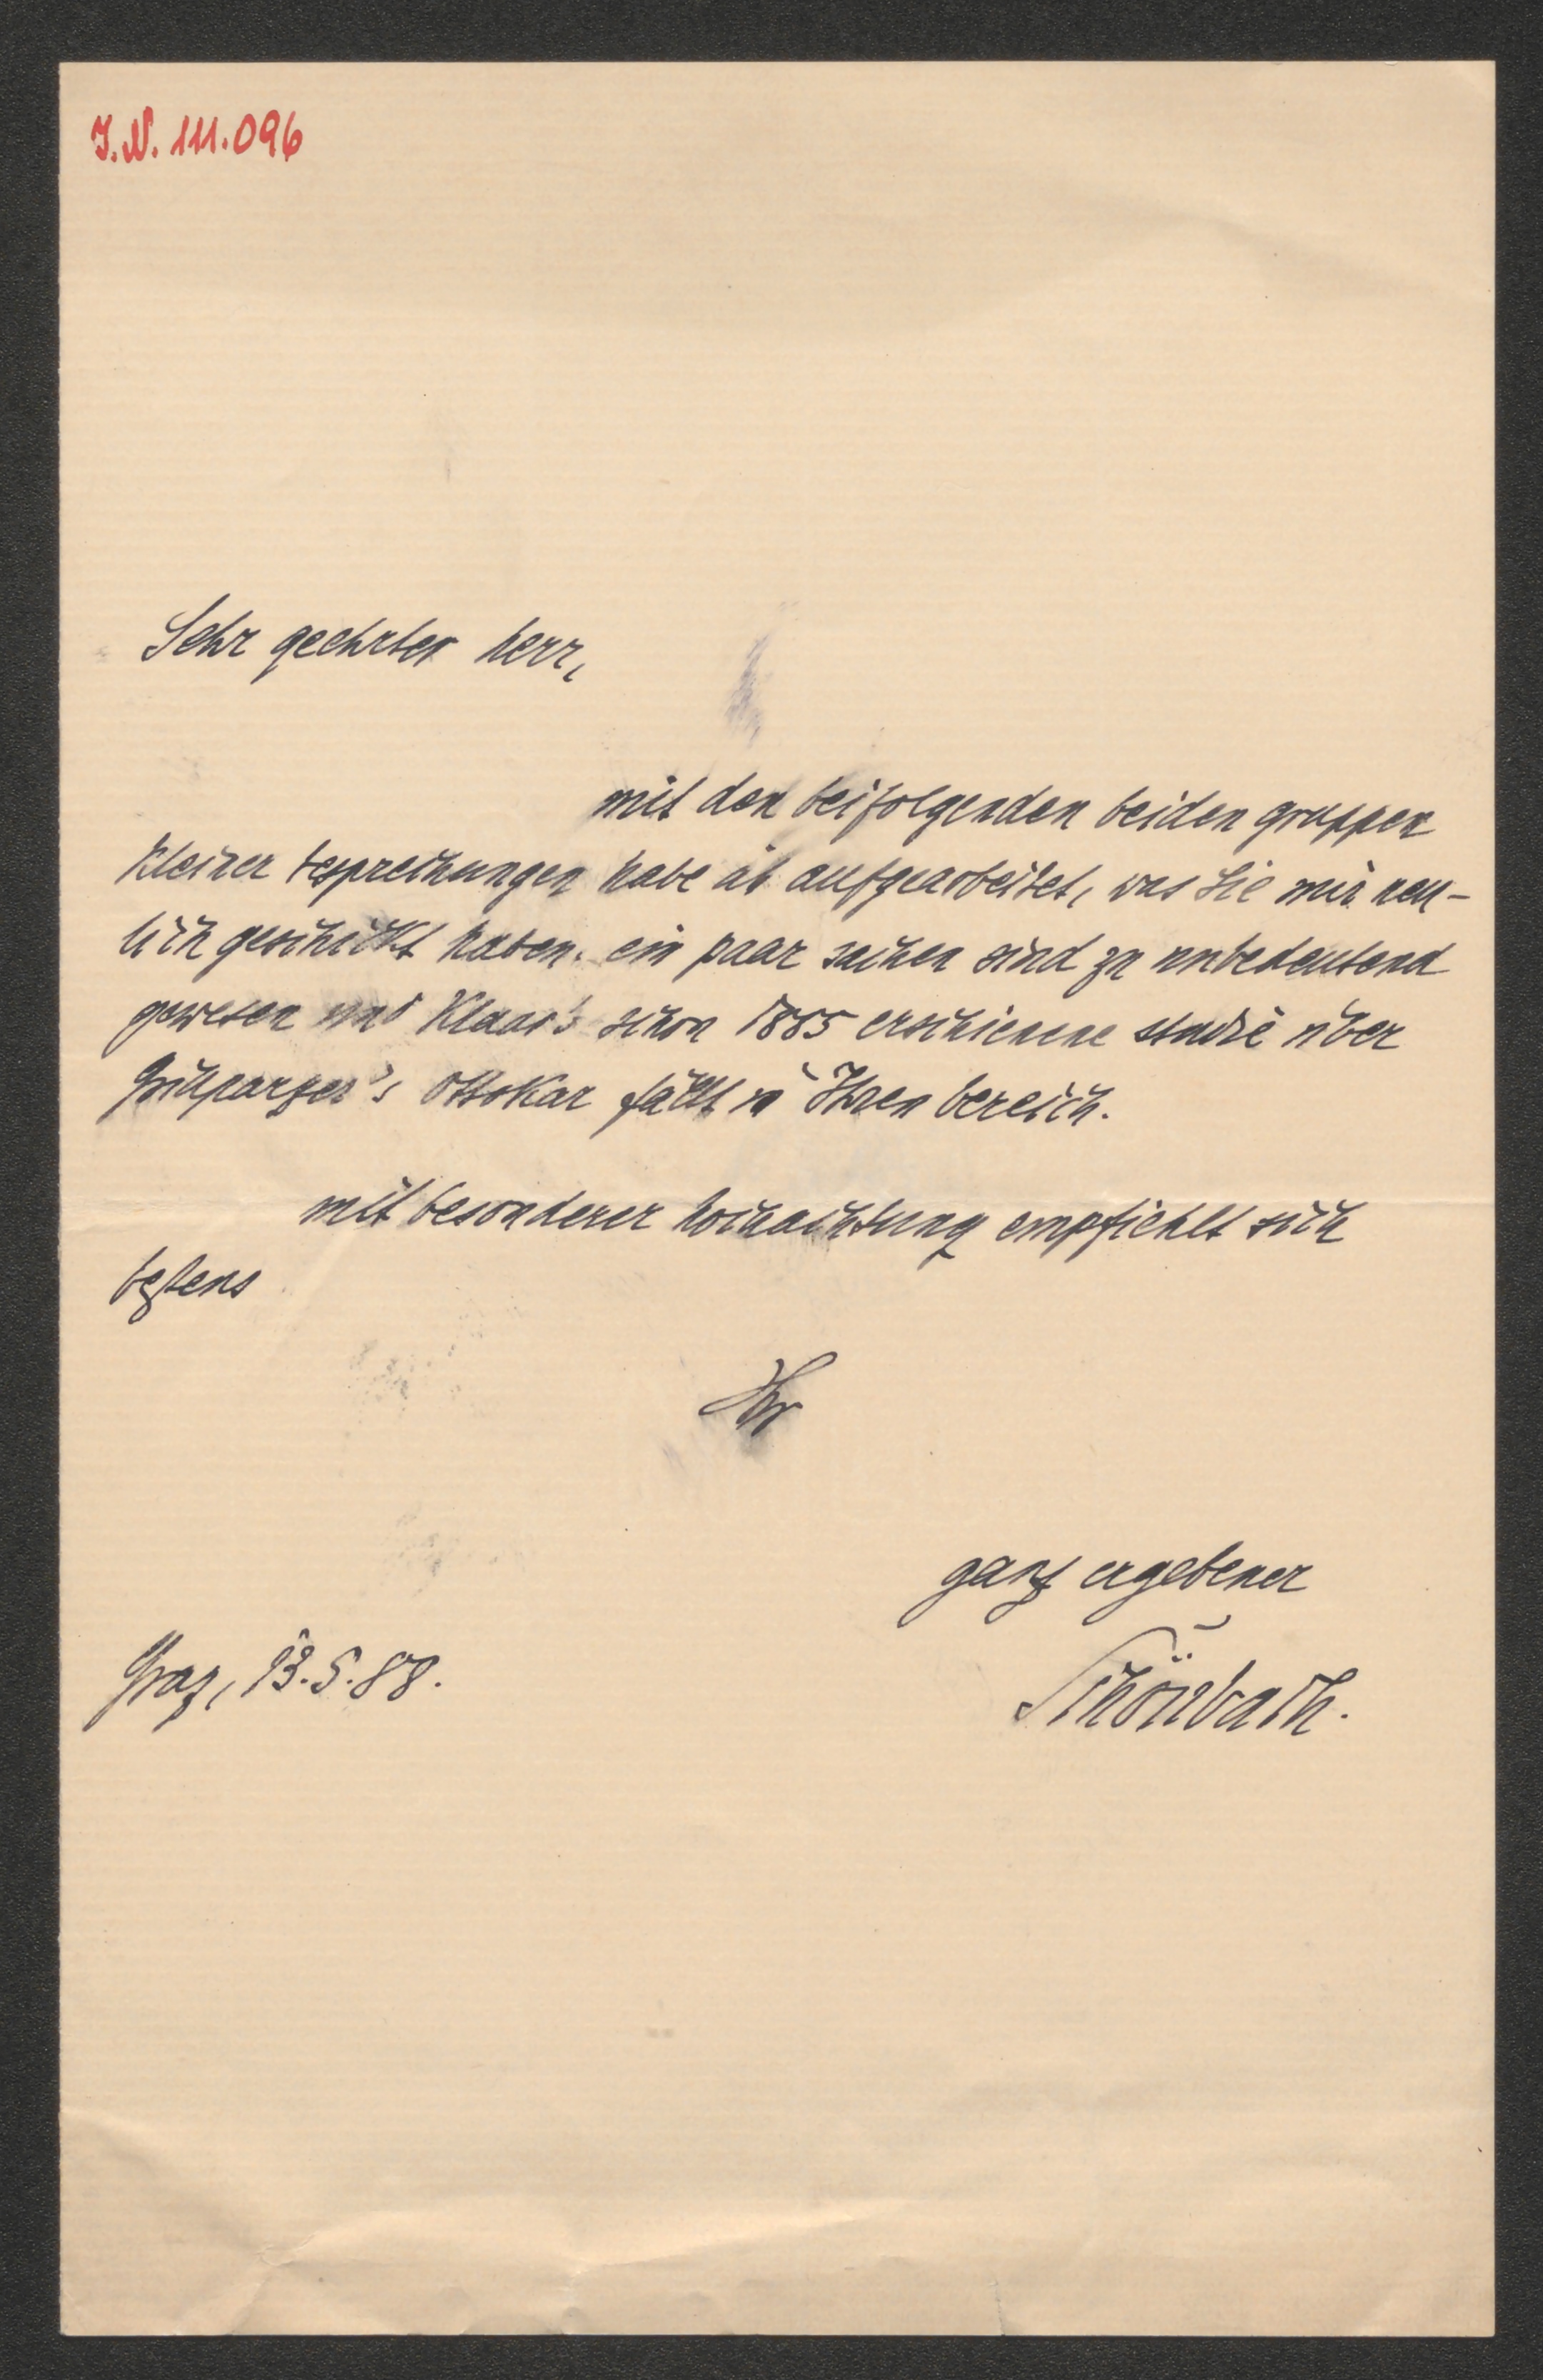 J.N. 111.096
Sehr geehrter herr,
mit den beifolgenden beiden gruppen
kleiner besprechungen habe ich aufgearbeitet, was Sie mir neu-
lich geschickt haben. ein paar sachen sind zu unbedeutend
gewesen und Klaar's schon 1885 erschienene studie über
Grillparzer's Ottokar fällt in Ihren bereich.
mit besonderer hochachtung empfiehlt sich
bestens
Ihr
ganz ergebener
Schönbach.
Graz, 13.5.88.